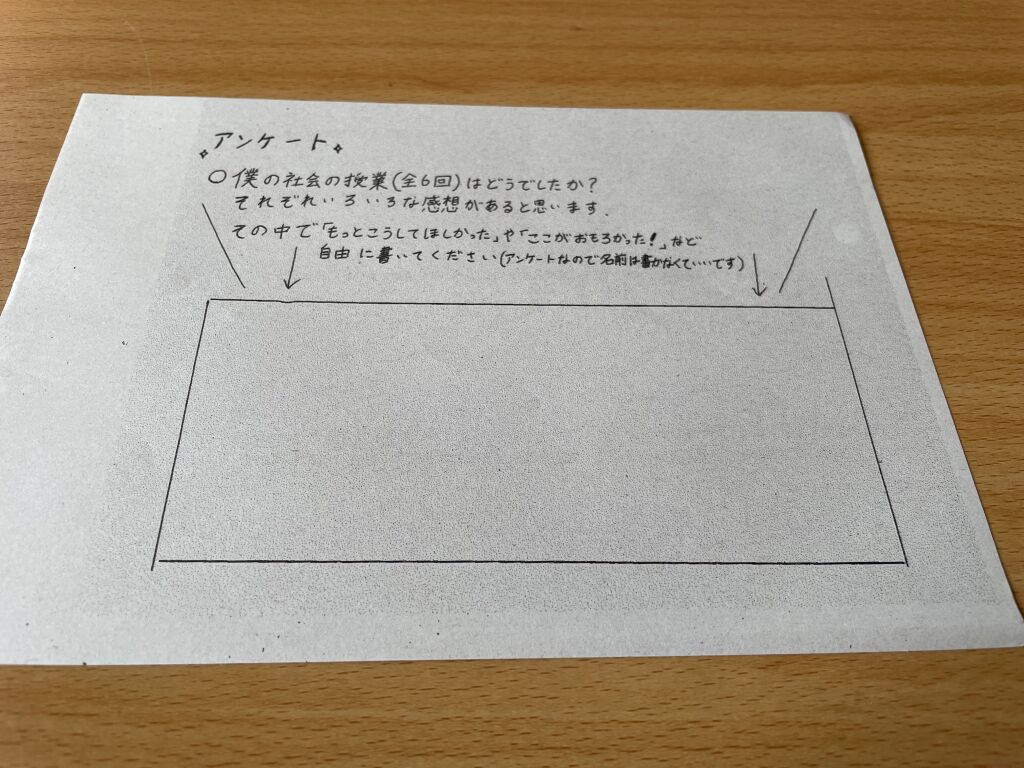 アンケート
○僕の社会の授業(全6回)はどうでしたか?
それぞれいろいろな感想があると思います.
その中で「もっとこうしてほしかった」や「ここがおもろかった!」など
自由に書いてください(アンケートなので名前は書かなくていいです)